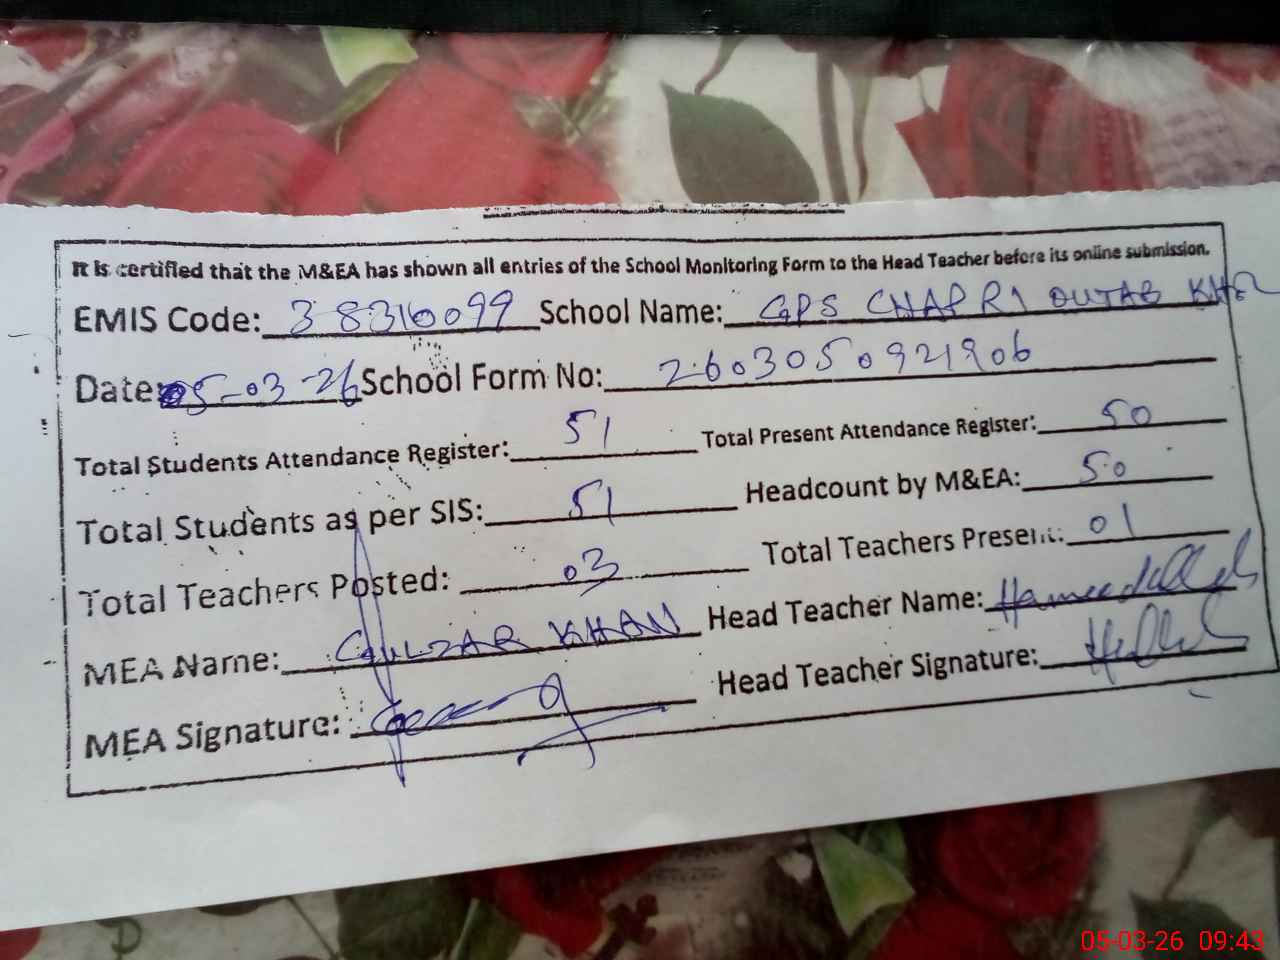 It is certified that the M&EA has shown all entries of the School Monitoring Form to the Head Teacher before its online submission.
EMIS Code: 38310099 School Name: GPS CHAPRI QUTAB KHEL
Date: 05-03-26 School Form No: 2603050921906
Total Students Attendance Register: 51 Total Present Attendance Register: 50
Total Students as per SIS: 51 Headcount by M&EA: 50
Total Teachers Posted: 03 Total Teachers Present: 01
MEA Name: GULZAR KHAN Head Teacher Name:
MEA Signature: Head Teacher Signature:
05-03-26 09:43